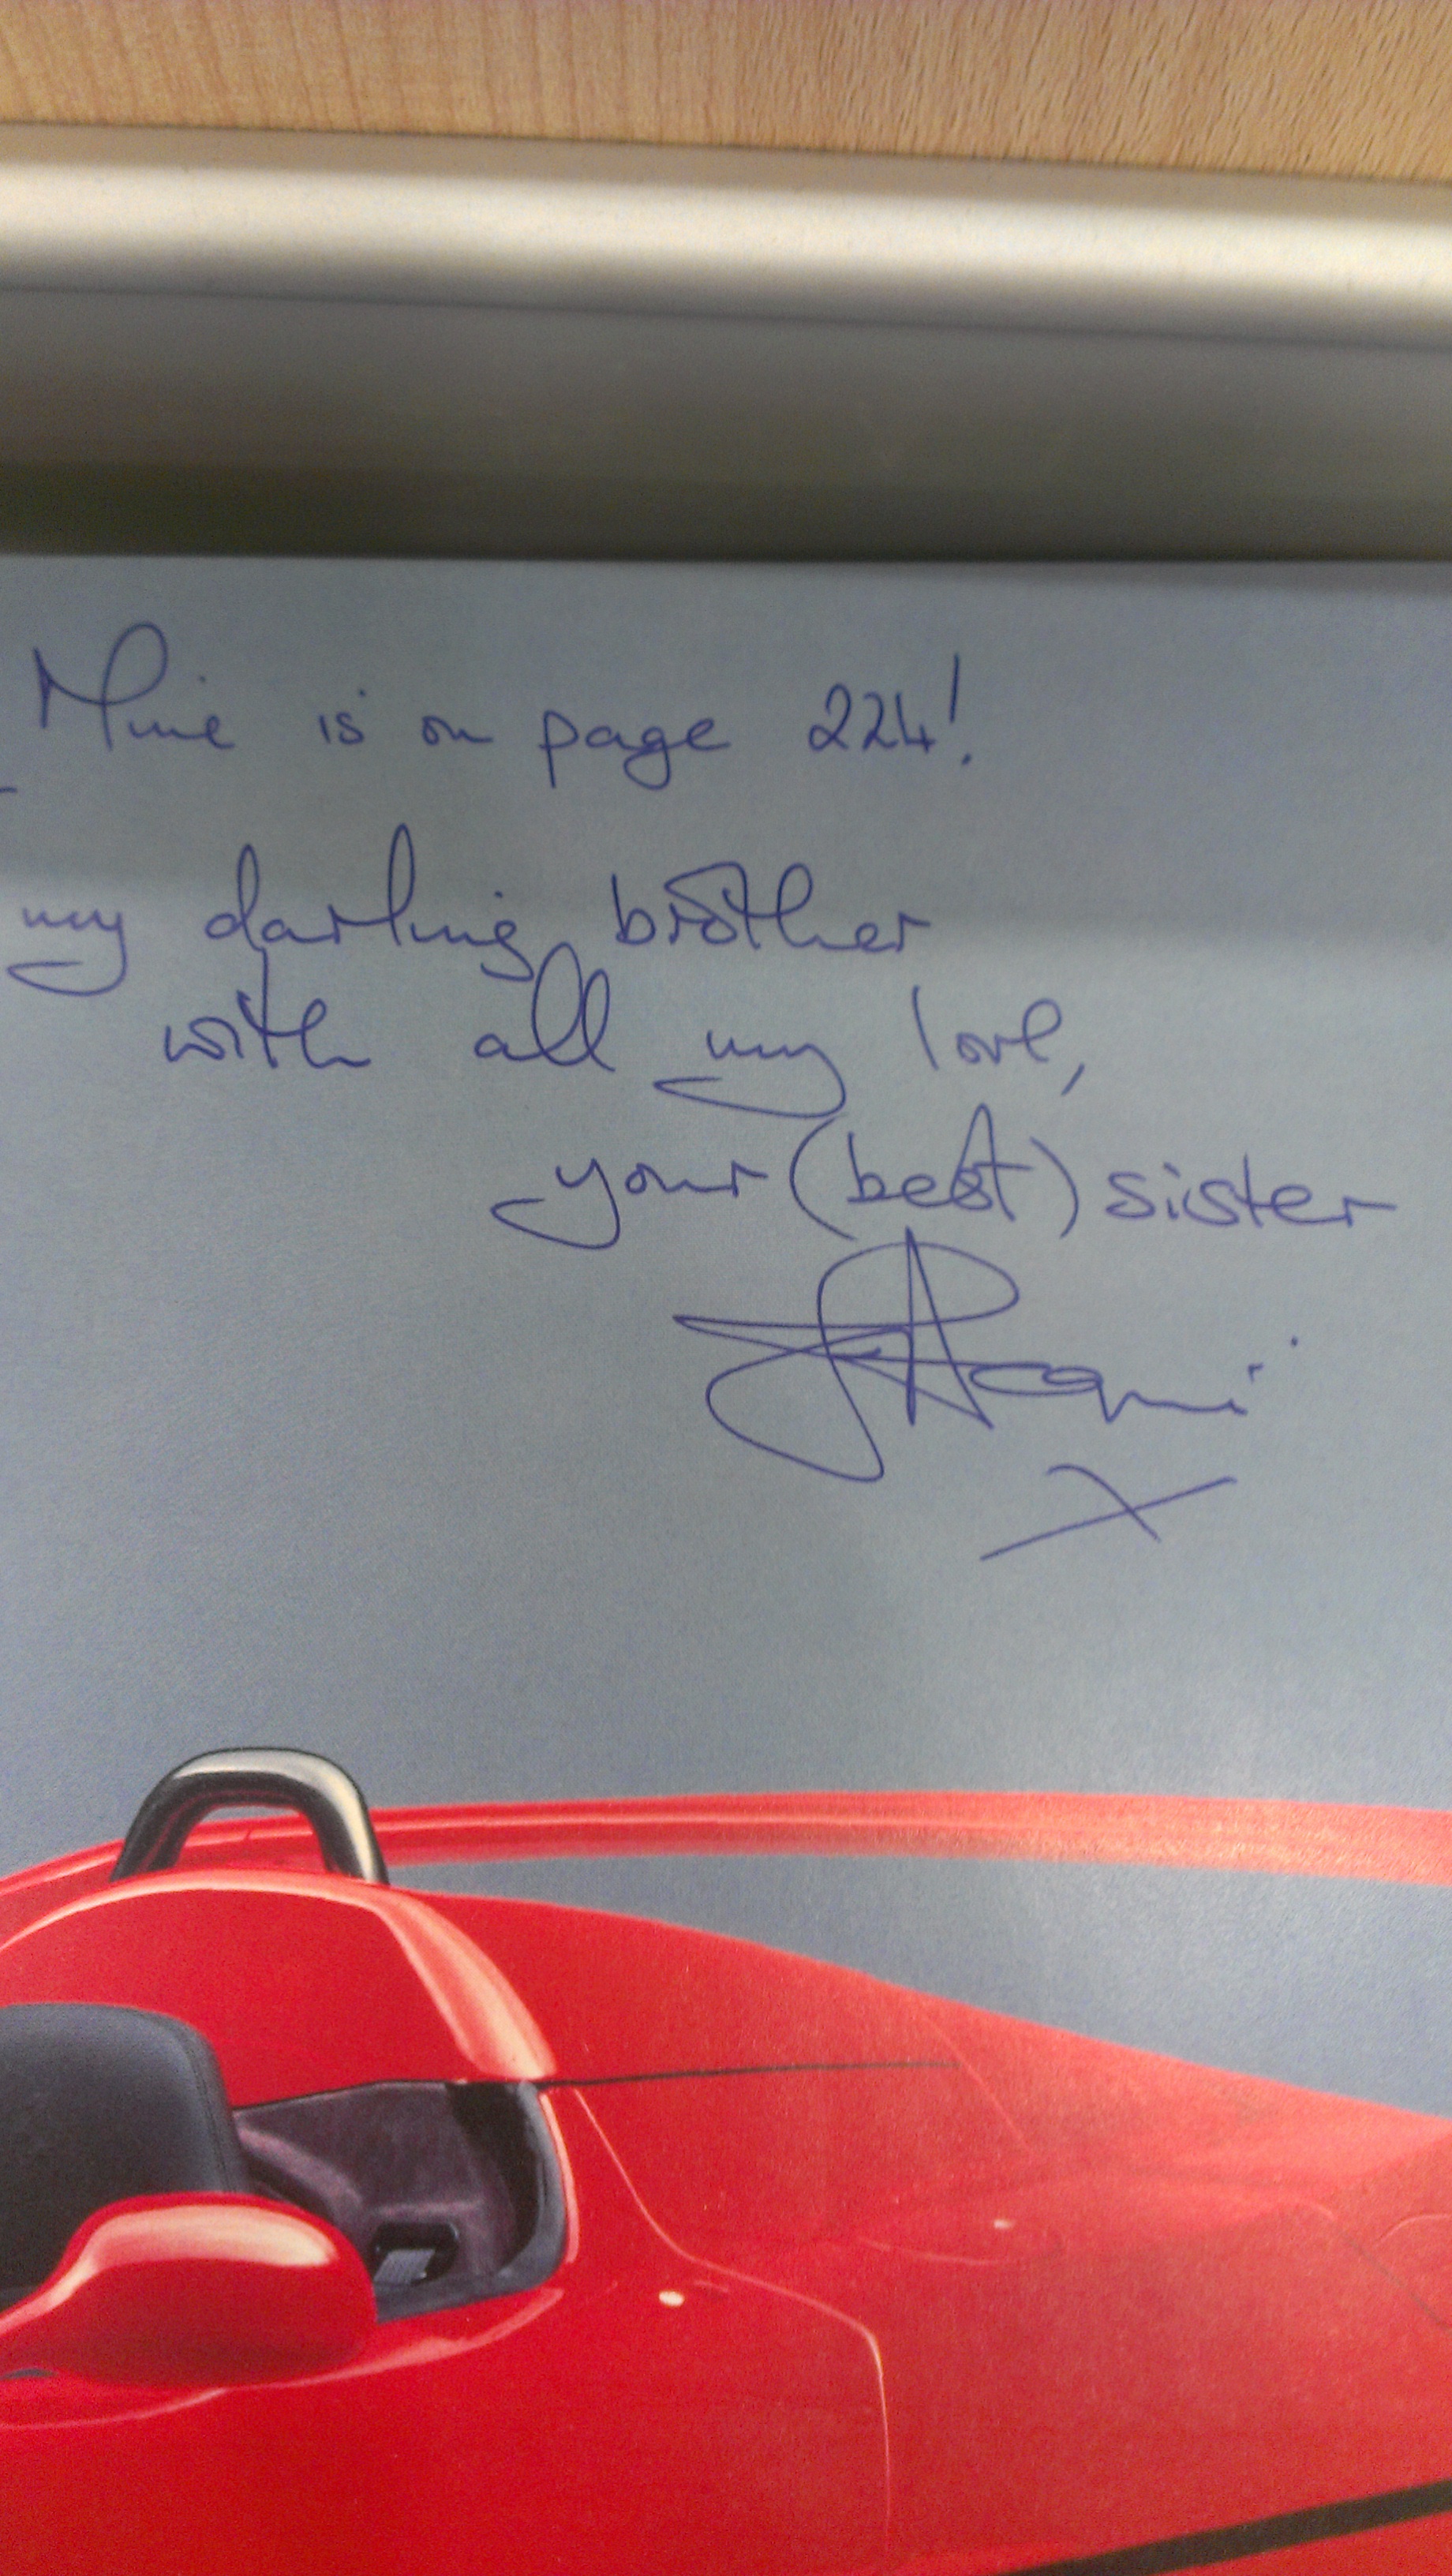 Mine is on page 224!
my darling brother
with all my love,
your (best) sister
x